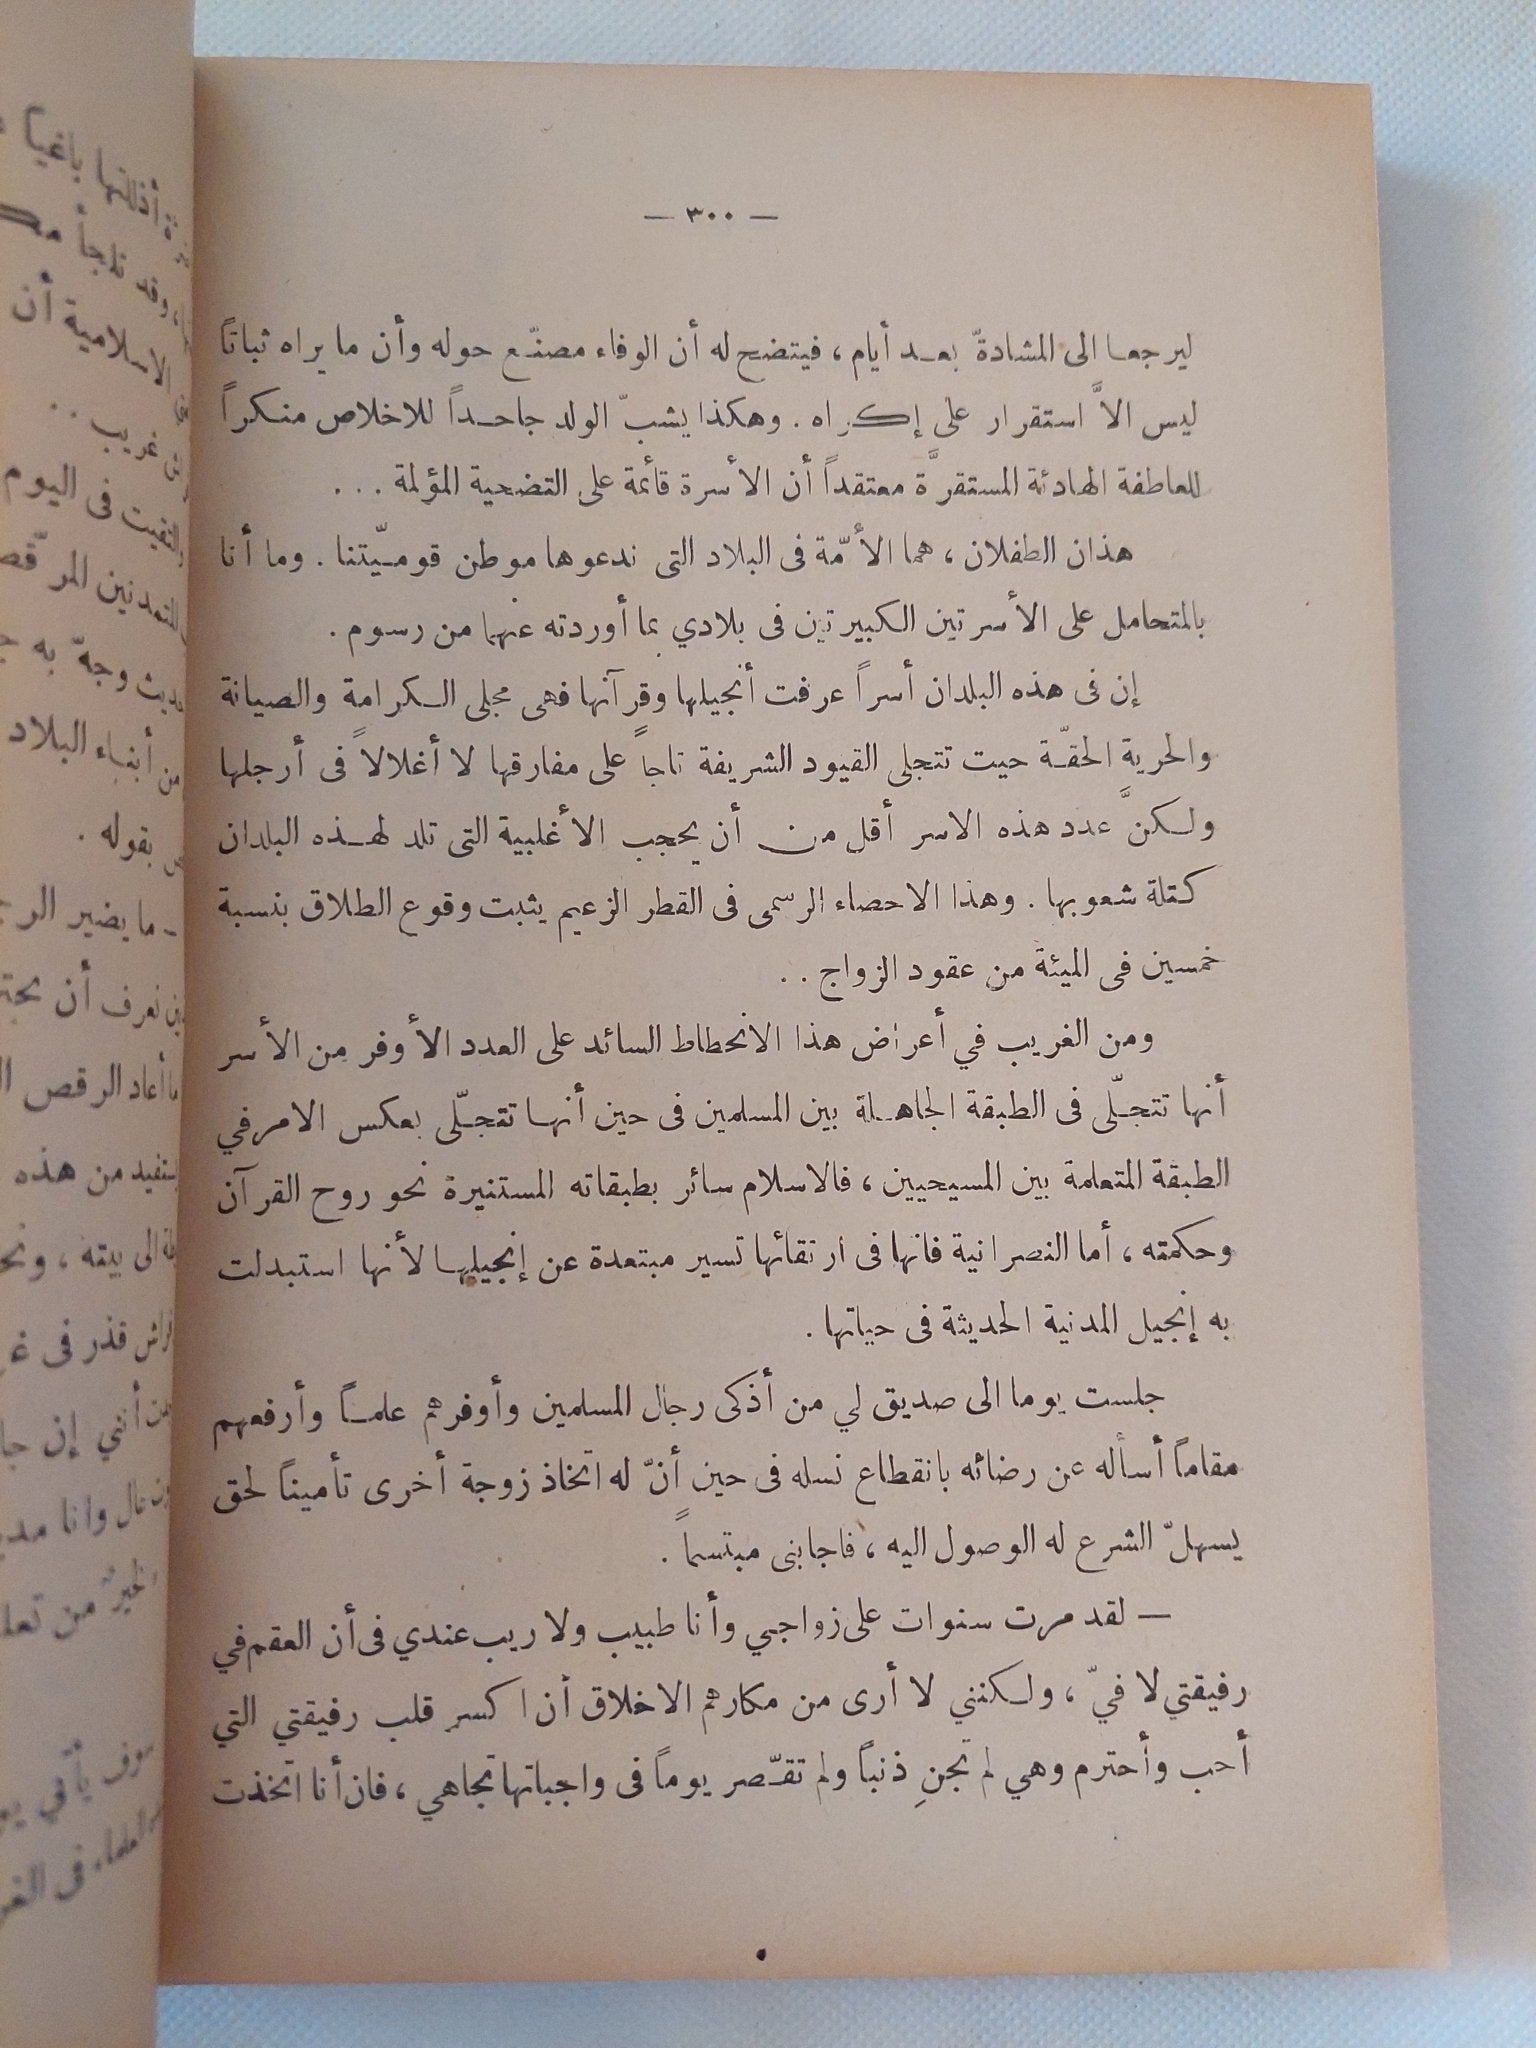 — ٣٠٠ —
ليرجعا الى المشادّة بعد أيام ، فيتضح له أن الوفاء مصنّع حوله وأن ما يراه ثباتاً
ليس الاَّ استقرار على إكراه . وهكذا يشبّ الولد جاحداً للاخلاص منكراً
للعاطفة الهادئة المستقرَّة معتقداً أن الأسرة قائمة على التضحية المؤلمة . . .
هذان الطفلان ، هما الأمّة فى البلاد التى ندعوها موطن قوميّتنا . وما أنا
بالمتحامل على الأسرتين الكبيرتين فى بلادي بما أوردته عنهما من رسوم .
إن فى هذه البلدان أسراً عرفت أنجيلها وقرآنها فهى مجلى الكرامة والصيانة
والحرية الحقّة حيت تتجلى القيود الشريفة تاجاً على مفارقها لا أغلالاً فى أرجلها
ولكنَّ عدد هذه الاسر أقل من أن يحجب الأغلبية التى تلد لهذه البلدان
كتلة شعوبها . وهذا الاحصاء الرسمى فى القطر الزعيم يثبت وقوع الطلاق بنسبة
خمسين فى الميئة من عقود الزواج . .
ومن الغريب في أعراض هذا الانحطاط السائد على العدد الأوفر من الأسر
أنها تتجلّى فى الطبقة الجاهلة بين المسلمين فى حين أنها تتجلّى بعكس الامر في
الطبقة المتعلمة بين المسيحيين ، فالاسلام سائر بطبقاته المستنيرة نحو روح القرآن
وحكمته ، أما النصرانية فانها فى ارتقائها تسير مبتعدة عن إنجيلها لأنها استبدلت
به إنجيل المدنية الحديثة فى حياتها .
جلست يوما الى صديق لي من أذكى رجال المسلمين وأوفرهم علماً وأرفعهم
مقاماً أسأله عن رضائه بانقطاع نسله فى حين أنّ له اتخاذ زوجة أخرى تأميناً لحق
يسهلّ الشرع له الوصول اليه ، فاجابنى مبتسماً .
— لقد مرت سنوات على زواجي وأنا طبيب ولا ريب عندي فى أن العقم في
رفيقتي لا فيّ ، ولكنني لا أرى من مكارهم الاخلاق أن اكسر قلب رفيقتي التي
أحب وأحترم وهي لم تجنِ ذنباً ولم تقّصر يوماً فى واجباتها تجاهي ، فان أنا اتخذت